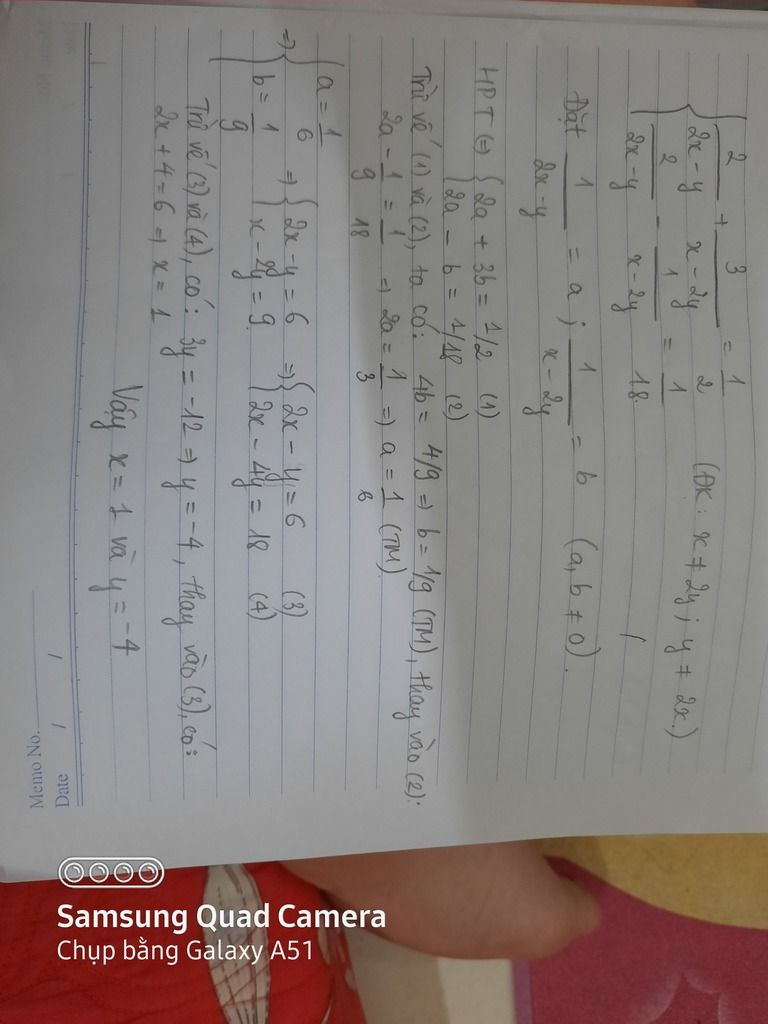 2/(2x-y) + 3/(x-2y) = 1/2 (ĐK: x ≠ 2y ; y ≠ 2x.)
2/(2x-y) - 1/(x-2y) = 1/18.
Đặt 1/(2x-y) = a ; 1/(x-2y) = b (a, b ≠ 0).
HPT (=) { 2a + 3b = 1/2 (1)
{ 2a - b = 1/18 (2)
Trừ vế (1) và (2), ta có: 4b = 4/9 => b = 1/9 (TM), thay vào (2):
2a - 1/9 = 1/18 => 2a = 1/3 => a = 1/6 (TM).
=> { a = 1/6 => { 2x - y = 6 => { 2x - y = 6 (3)
{ b = 1/9 { x - 2y = 9 { 2x - 4y = 18 (4)
Trừ vế (3) và (4), có: 3y = -12 => y = -4, thay vào (3), có:
2x + 4 = 6 => x = 1
Vậy x = 1 và y = -4
Memo No.
Date / /
Samsung Quad Camera
Chụp bằng Galaxy A51